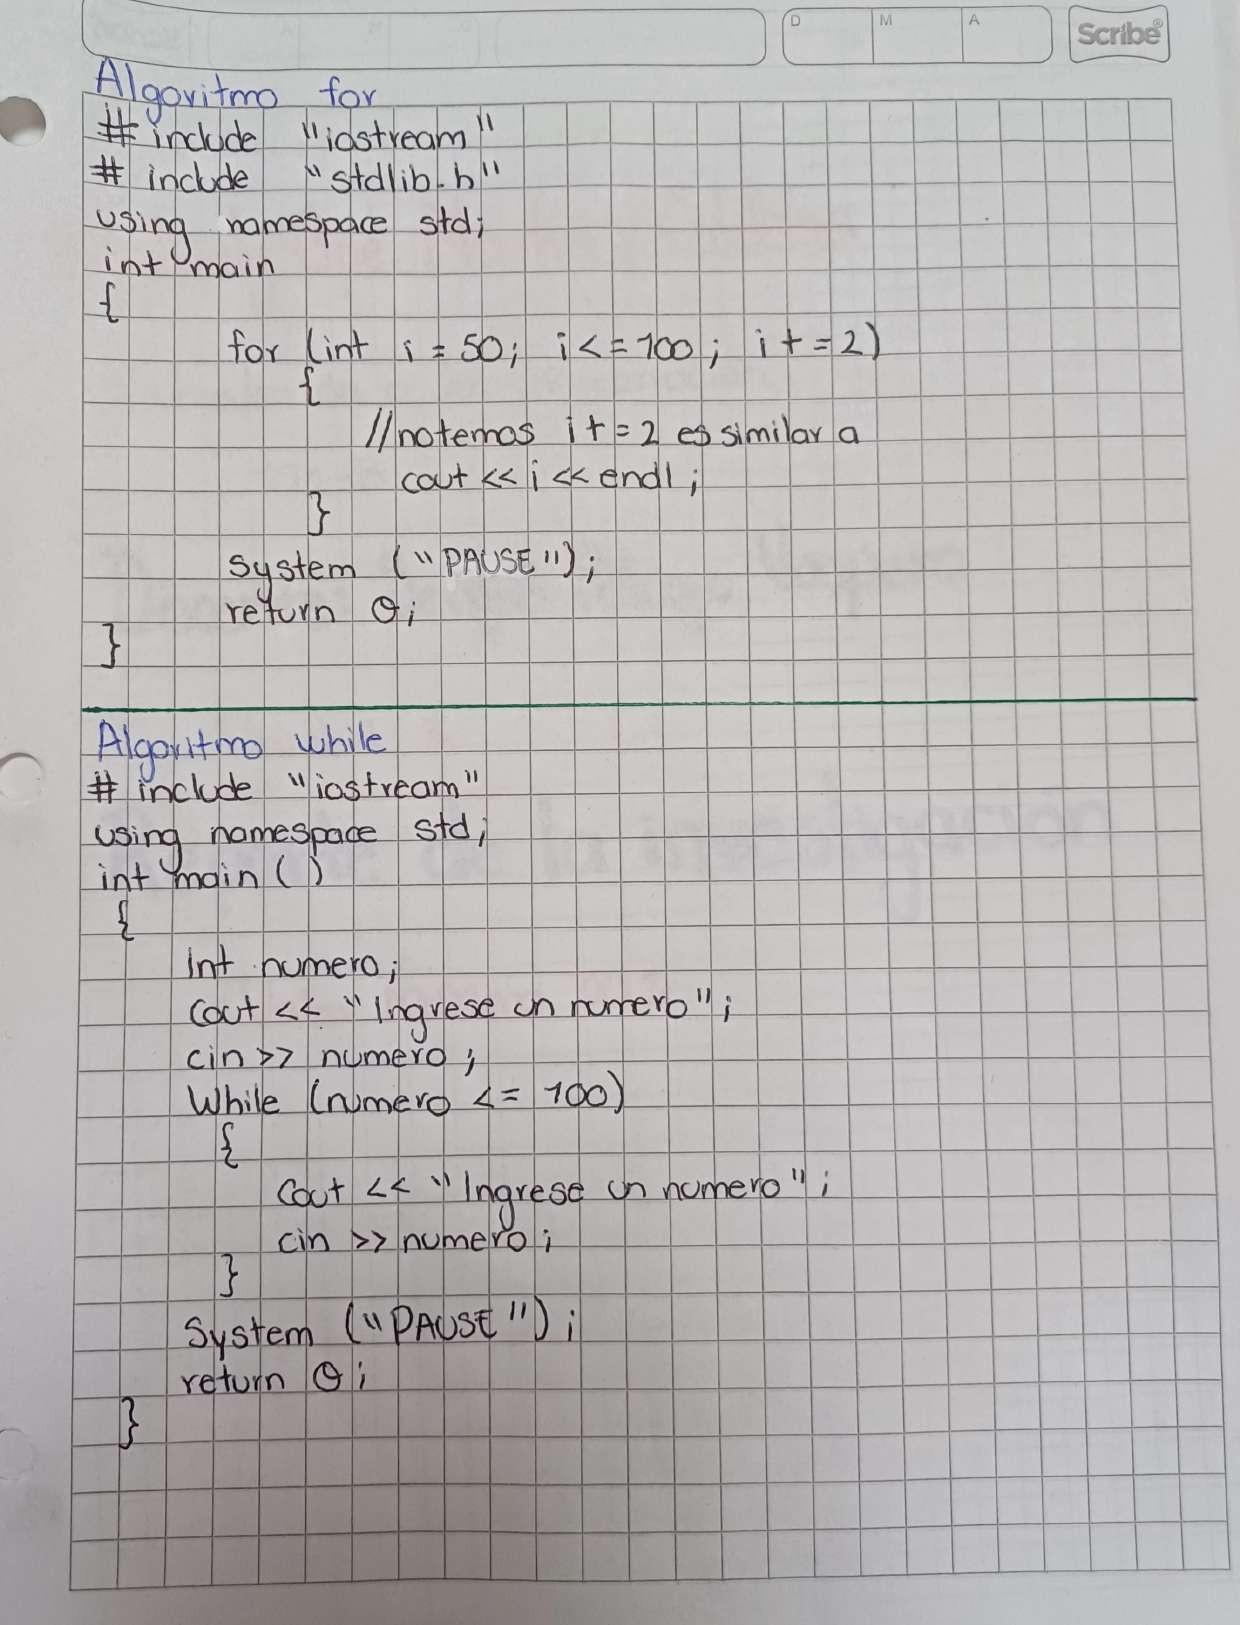 D M A Scribe®
Algoritmo for
# include "iostream"
# include "stdlib.h"
using namespace std;
int main
{
for (int i = 50; i <= 100; i += 2)
{
//notemos i += 2 es similar a
cout << i << endl;
}
system ("PAUSE");
return 0;
}
Algoritmo while
# include "iostream"
using namespace std;
int main ( )
{
int numero;
Cout << "Ingrese un numero";
cin >> numero;
While (numero <= 100)
{
Cout << "Ingrese un numero";
cin >> numero;
}
System ("PAUSE");
return 0;
}